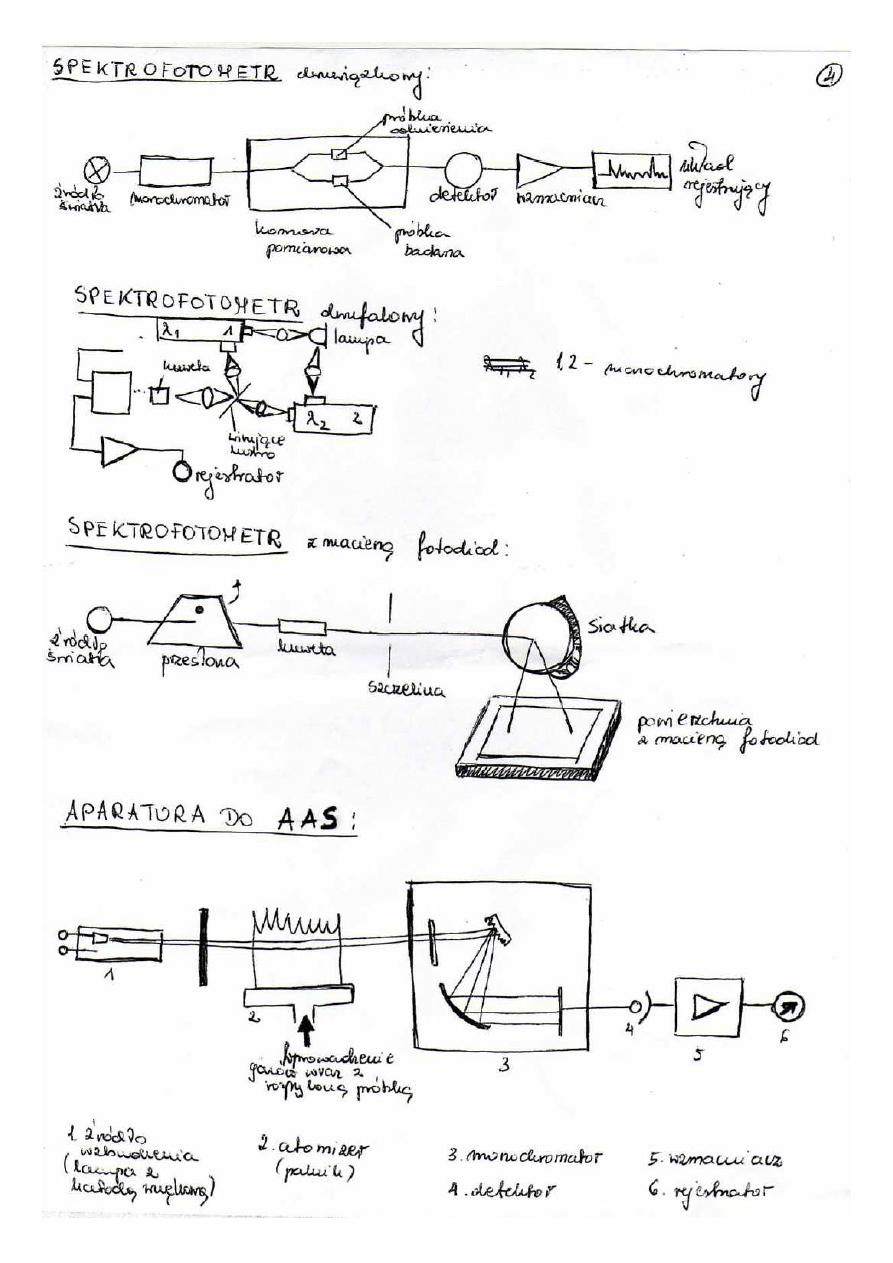 SPEKTROFOTOMETR dwuwiązkowy:
4
próbka
odniesienia
źródło
światła
monochromator
detektor
wzmacniacz
układ
rejestrujący
komora
pomiarowa
próbka
badana
SPEKTROFOTOMETR dwufalowy:
λ1 1
lampa
kuweta
1,2 - monochromatory
λ2 2
wirujące
lustro
rejestrator
SPEKTROFOTOMETR z macierzą fotodiod:
źródło
światła
przesłona
kuweta
szczelina
siatka
powierzchnia
z macierzą fotodiod
APARATURA DO AAS:
1
2
3
4
5
6
wprowadzenie
gazów wraz z
rozpyloną próbką
1. źródło
wzbudzenia
(lampa z
katodą wnękową)
2. atomizer
(palnik)
3. monochromator
4. detektor
5. wzmacniacz
6. rejestrator